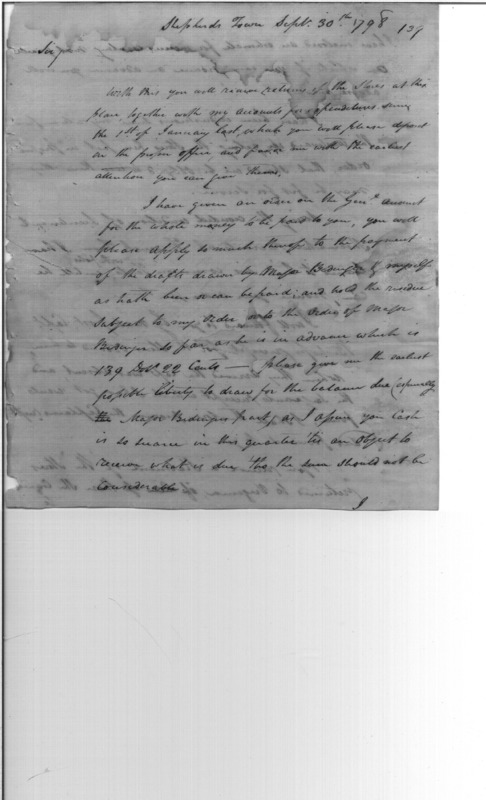 Shepherds Town Sept. 30th 1798
139
Sir,
With this you will receive returns of the Stores at this
place together with my accounts for expenditures since
the 1st of January last, which you will please deposit
in the proper office and favor me with the earliest
attention you can give them.
I have given an order on the Genl. account
for the whole money to be paid to you, you will
please apply so much thereof to the payment
of the drafts drawn by Major Bedinger & myself
as hath been or can be paid; and hold the residue
subject to my order and the order of Major
Bedinger so far as he is in advance which is
139 Dols. 22 Cents — please give me the earliest
possible liberty to draw for the balance due (especially
the Major Bedingers part) as I assure you Cash
is so scarce in this quarter 'tis an object to
receive what is due tho. the sum should not be
considerable
I